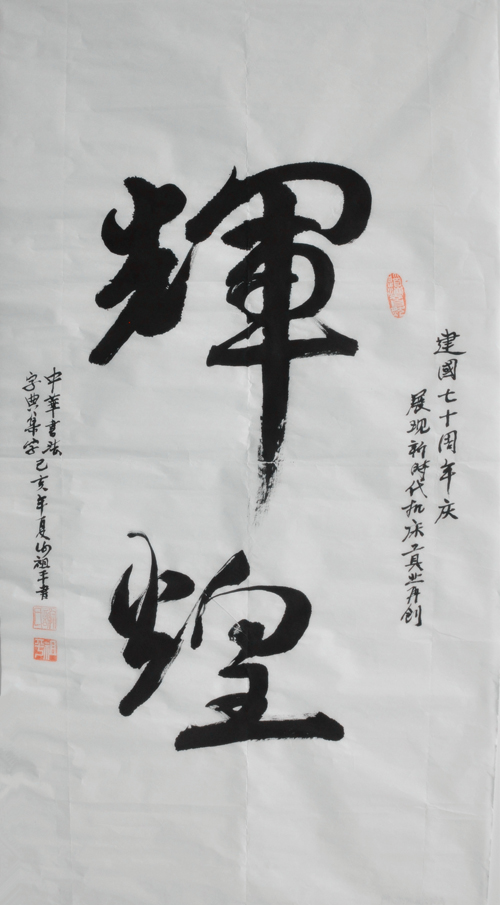 建國七十周年庆
展现新时代机床工具业再创
輝煌
中華書法
字典集字
己亥年夏祖平書